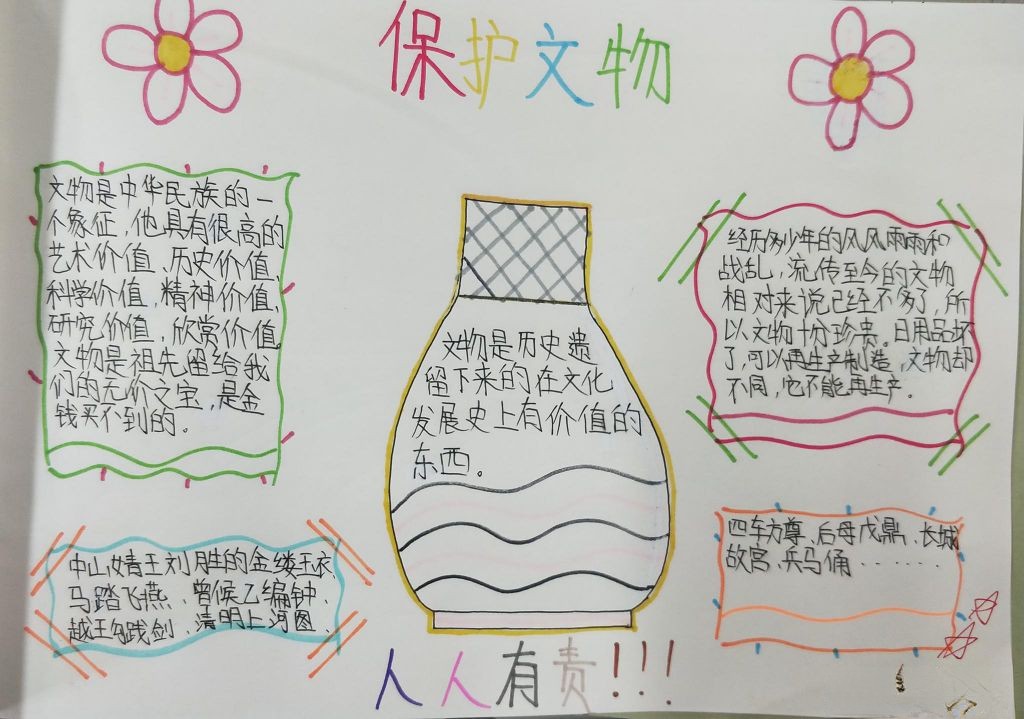 保护文物
文物是中华民族的一
个象征,他具有很高的
艺术价值、历史价值、
科学价值,精神价值、
研究价值、欣赏价值
文物是祖先留给我
们的无价之宝,是金
钱买不到的。
文物是历史遗
留下来的在文化
发展史上有价值的
东西。
经历多少年的风风雨雨和
战乱,流传至今的文物
相对来说已经不多了,所
以文物十分珍贵。日用品坏
了,可以再生产制造,文物却
不同,它不能再生产。
中山婧王刘胜的金缕玉衣
马踏飞燕、曾候乙编钟、
越王勾践剑、清明上河图、
四车方尊、后母戊鼎、长城
故宫、兵马俑.......
人人有责!!!